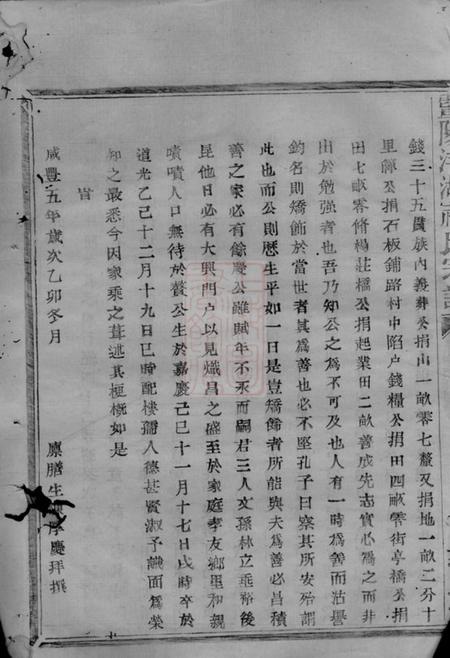 錢三十五貫族內義葬公捐山一畝零七釐又捐地一畝二分十
里牌公捐石板鋪路村中陷户錢糧公捐田四畝零街亭橋公捐
田七畝零修楊莊橋公捐起業田二畝善成先志實心為之而非
由於勉強者也吾乃知公之為不可及也人有一時為善而沽譽
釣名則矯飾於當世者其為善也必不堅孔子曰察其所安殆謂
此也而公則歷生平如一日是豈矯餙者所能與夫為善必昌積
善之家必有餘慶公雖賦年不永而嗣君三人文孫林立垂裕後
昆他日必有大興門户以見熾昌之盛至於家庭孝友鄉里和親
嘖嘖人口無待於贊公生於嘉慶己巳十一月十七日戌時卒於
道光乙己十二月十九日巳時配樓孺人德甚賢淑予識面為榮
知之最悉今因家乘之葺述其梗概如是
旹
咸豐五年歲次乙卯冬月
廩膳生 厚慶拜撰